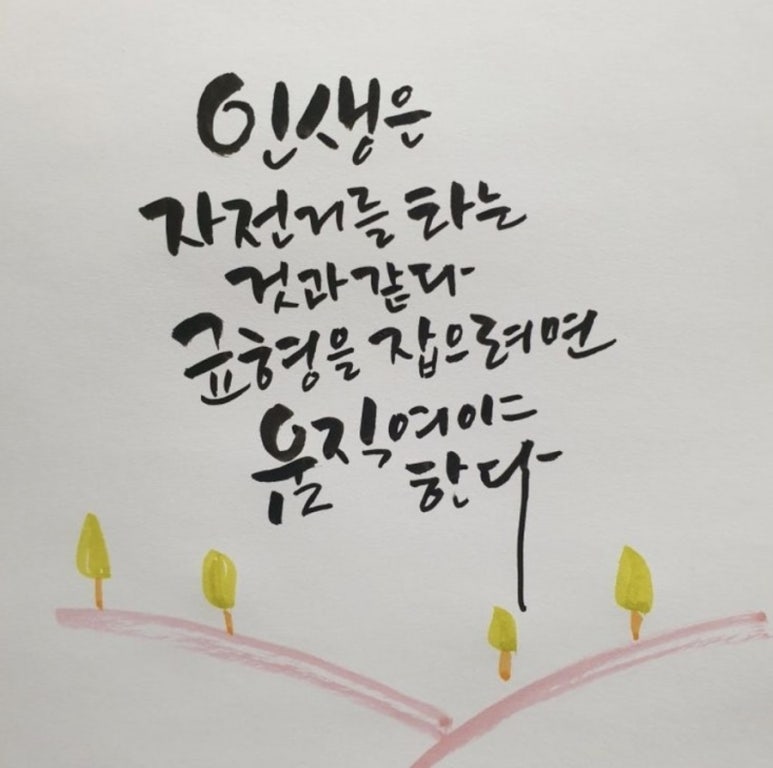 인생은
자전거를 타는
것과 같다
균형을 잡으려면
움직여야
한다